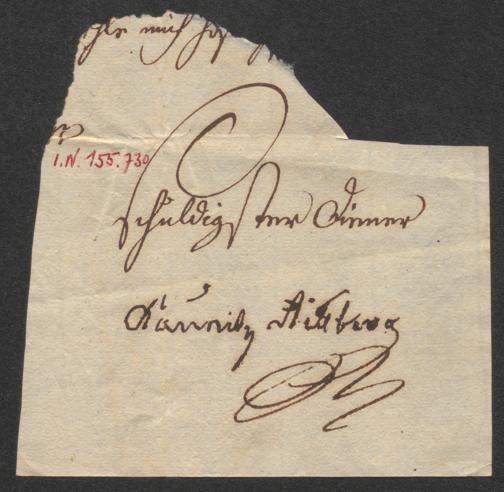 mich
I.N. 155.730
schuldigster Diener
Kaunitz Rittberg